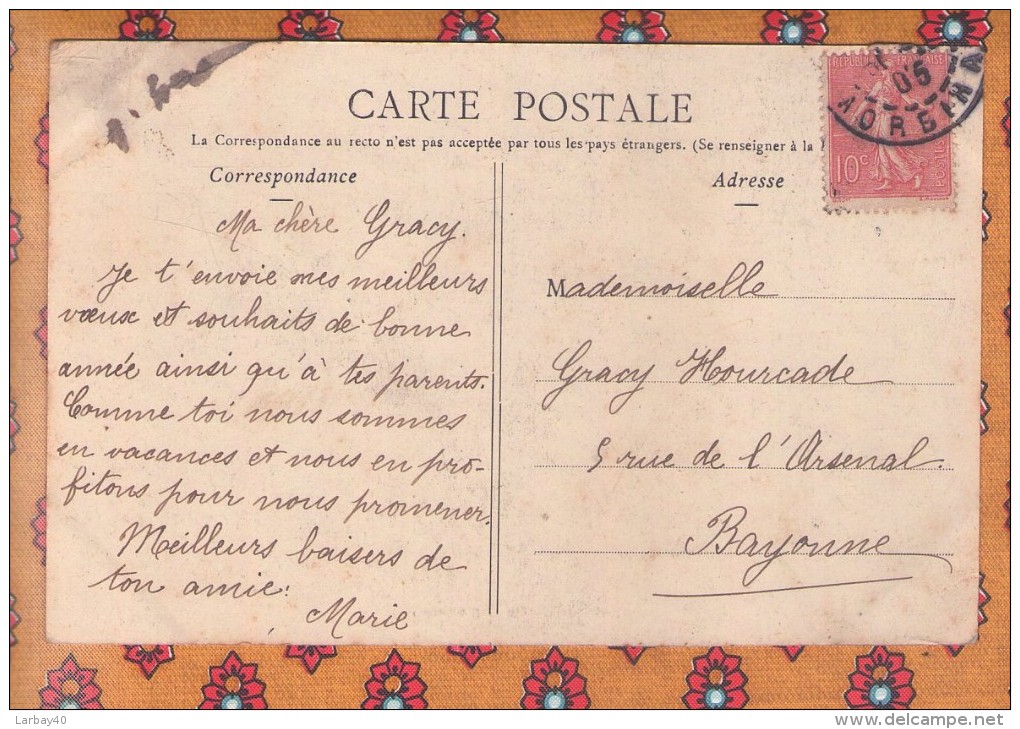 CARTE POSTALE
La Correspondance au recto n'est pas acceptée par tous les pays étrangers. (Se renseigner à la
Correspondance
Adresse
REPUBLIQUE FRANÇAISE
05
10c
POSTES
Ma chère Gracy.
Je t'envoie mes meilleurs
vœux et souhaits de bonne
année ainsi qu'à tes parents.
Comme toi nous sommes
en vacances et nous en pro-
fitons pour nous promener.
Meilleurs baisers de
ton amie:
Marie
Mademoiselle
Gracy Hourcade
5 rue de l'Arsenal.
Bayonne
Larbay40
www.delcampe.net